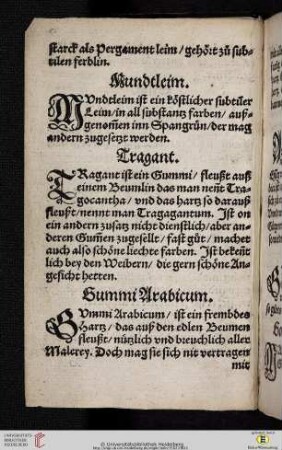 starck als Pergament leim / gehört zů sub-
tilen ferblin.
Mundtleim.
MVndtleim ist ein köstlicher subtiler
Leim / in all substantz farben / auß-
genom̃en inn Spangrün / der mag
andern zugesetzt werden.
Tragant.
TRagant ist ein Gummi / fleußt auß
einem Beumlin das man nent Tra-
gocantha / vnd das hartz so darauß
fleußt / nennt man Tragagantum. Ist on
ein andern zusatz nicht dienstlich / aber an-
deren Gum̃en zugesellt / fast gůt / machet
auch also schöne liechte farben. Ist bekent-
lich bey den Weibern / die gern schöne An-
gesicht hetten.
Gummi Arabicum.
GVmmi Arabicum / ist ein frembdes
Hartz / das auß den edlen Beumen
fleußt / nützlich vnd breuchlich aller
Malerey. Doch mag sie sich nit vertragen
mit
UNIVERSITÄTS-
BIBLIOTHEK
HEIDELBERG
© Universitätsbibliothek Heidelberg